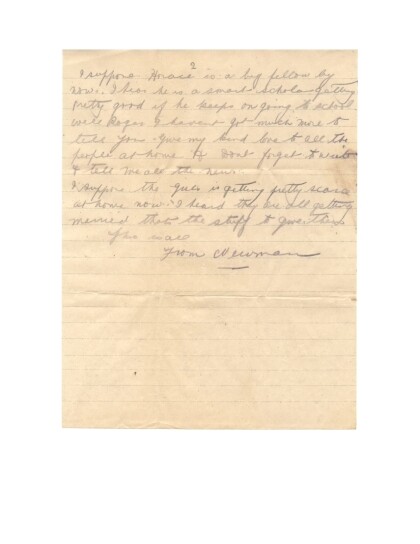 2
I suppose Horace is a big fellow by
now. I hear he is a smart scholar getting
pretty good if he keeps on going to school.
well I havent got much more to
tell you. Give my kind love to all the
people at home & dont forget to write
& tell me all the news.
I suppose the girls is getting pretty scarce
at home now. I heard they are all getting
married that the stuff to give them
This is all
From Newman